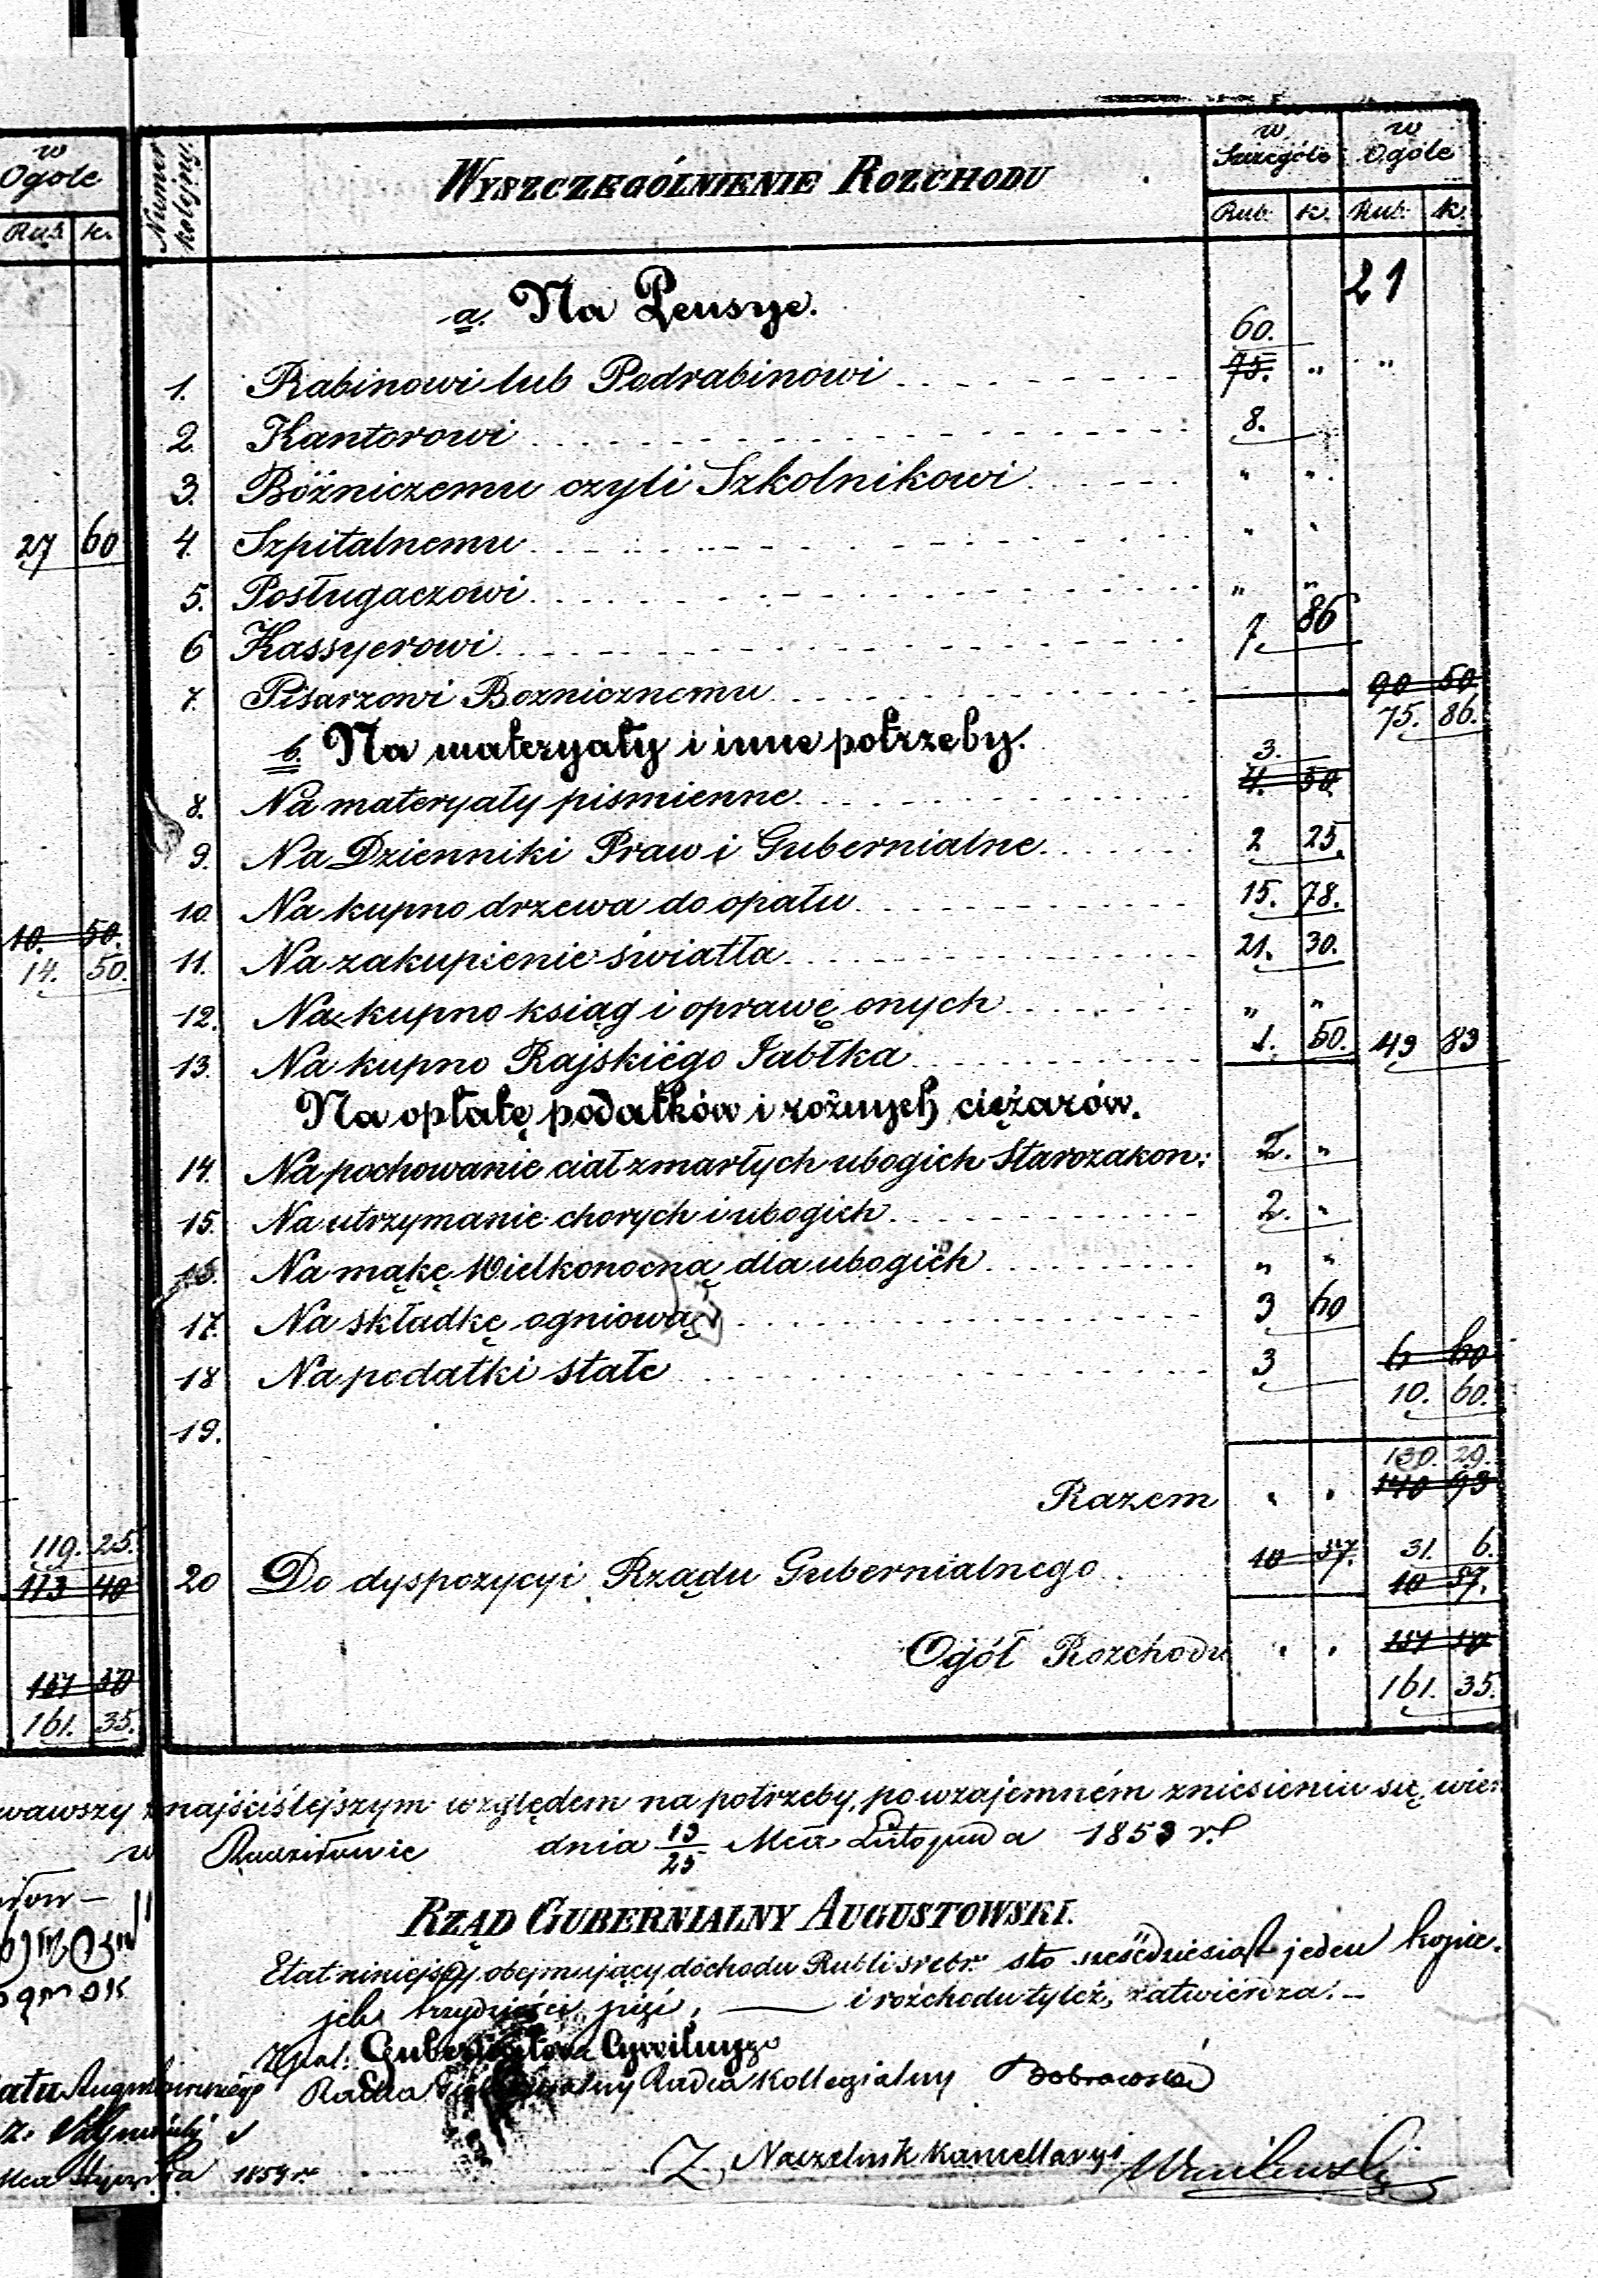 w Ogóle
Rub. k.
27 60
10. 50.
14. 50.
119. 25.
113 40
151 30
161. 35.
Numer kolejny.
WYSZCZEGÓLNIENIE ROZCHODU
w Szczególe
w Ogóle
Rub. k. Rub. k.
21
a. Na Pensye.
60.
1. Rabinowi lub Podrabinowi 75. " "
2. Kantorowi 8. "
3. Bóżniczemu czyli Szkolnikowi " "
4. Szpitalnemu " "
5. Posługaczowi " "
6 Kassyerowi 7 86
7. Pisarzowi Boznicznemu 90 50
75. 86.
b. Na materyały i inne potrzeby.
3.
8. Na materyały pismienne 4. 50
9. Na Dzienniki Praw i Gubernialne 2 25.
10. Na kupno drzewa do opału 15. 78.
11. Na zakupienie światła 21. 30.
12. Na kupno ksiąg i oprawę onych " "
13. Na kupno Rajskiégo Jabłka 1. 50. 43 83
Na opłatę podatków i rożnych ciężarów.
14. Na pochowanie ciał zmarłych ubogich Starozakon: 2. "
15. Na utrzymanie chorych i ubogich 2. "
16. Na mąkę Wielkonocną dla ubogich " "
17. Na składkę ogniową 3 60
18 Na podatki stałe 3 6 60
10. 60.
19.
130. 29.
Razem " " 140 93
31. 6.
20 Do dyspozycyi Rządu Gubernialnego 10 37. 10 37.
Ogół Rozchodu " " 151 30
161. 35.
wawszy z najściślejszym względem na potrzeby, po wzajemném zniesieniu się, wier
w Radziłowie dnia 13/25 Mca Listopada 1853 r.
RZĄD GUBERNIALNY AUGUSTOWSKI.
Etat niniejszy obejmujący dochodu Rubli srebr. sto sześćdziesiąt jeden kopie.
jek trzydzieści pięć, i rozchodu tyleż, zatwierdza.
Gubernatora Cywilnego
Radca Radca Kollegialny Bobrowski
Z. Naczelnik Kancellaryi
1854 r.